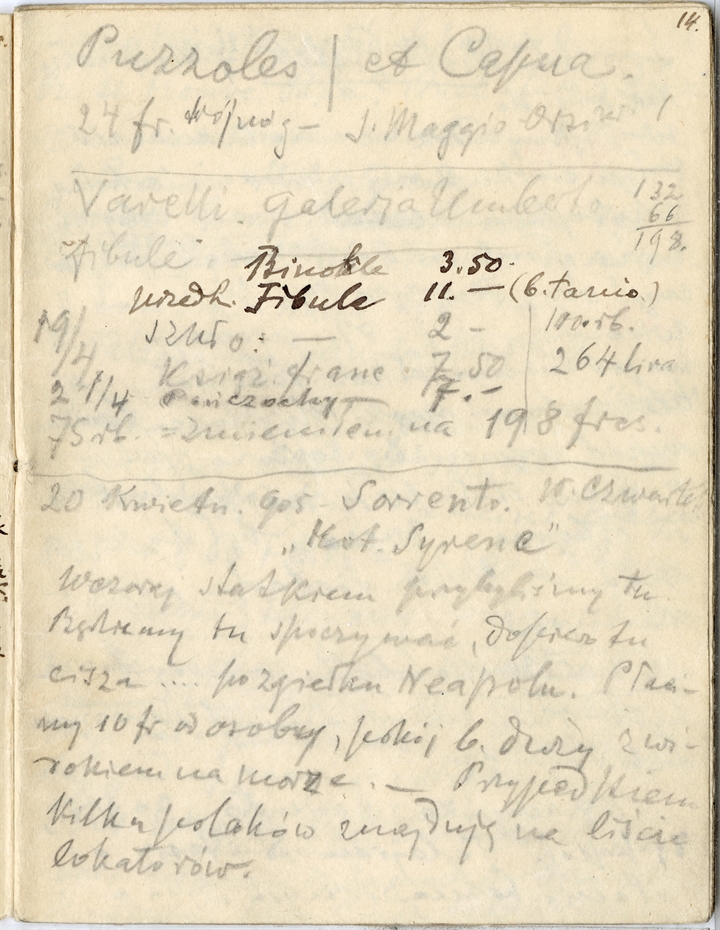 14.
Puzzoles | et Capua.
24 fr. J. Maggio
Varelli. Galerja Umberto
132
66
198.
Fibule. Binokle 3.50.
przedh. Fibule 11.— (b. tanio.)
19/4 Szkło: — 2 - 100 rb.
Książ. franc. 7.50 264 lira
21/4 Pończochy — 7.-
75 rb. = zmieniłem na 198 frcs.
20 Kwietn. 905 - Sorrento. Czwartek
„Hot. Syrene"
Wczoraj statkiem przybyliśmy tu.
Będziemy tu spoczywać, dopiero tu
cisza .... po zgiełku Neapolu. Płaci-
my 10 fr od osoby, pokój b. duży z wi-
dokiem na morze. — Przypadkiem
kilku polaków znajduję na liście
lokatorów.